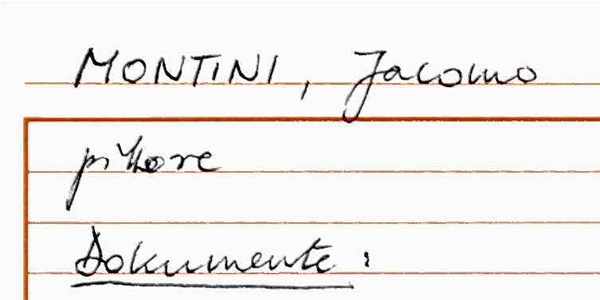 MONTINI, Jacomo
pittore
Dokumente: